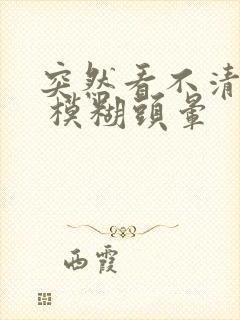 突然看不清
模糊頭暈
西霞